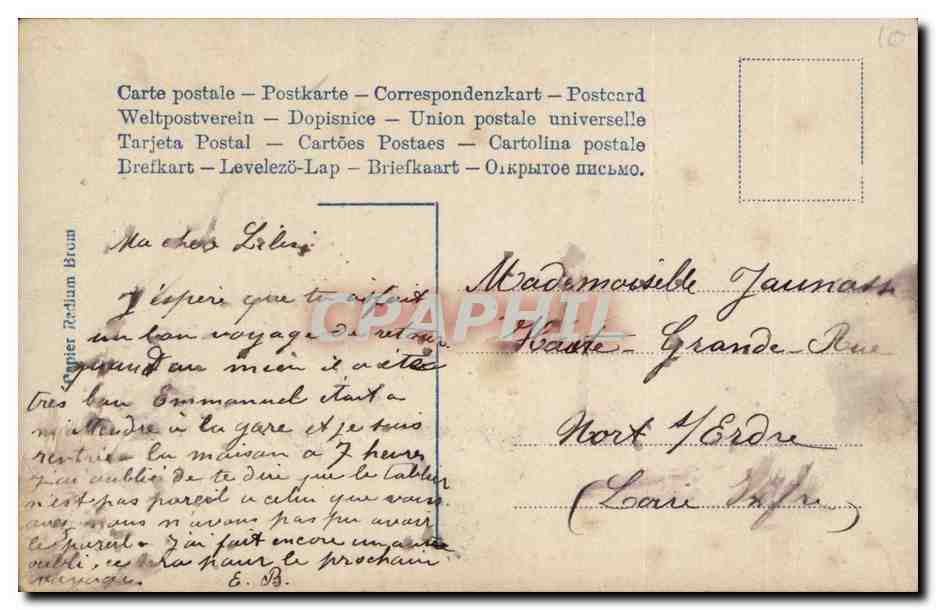 10
Carte postale — Postkarte — Correspondenzkart — Postcard
Weltpostverein — Dopisnice — Union postale universelle
Tarjeta Postal — Cartões Postaes — Cartolina postale
Brefkart — Levelező-Lap — Briefkaart — Открытое письмо.
Papier Radium Brom
Ma chere Lilisi
J'éspère que tu as fait
un bon voyage de retour
quand au mien il a été
très bon Emmanuel était a
m'attendre à la gare et je suis
rentrée a la maison a 7 heures
J'ai oublié de te dire que le tablier
n'est pas pareil a celui que vous
avez nous n'avons pas pu avoir
le pareil. J'ai fait encore un autre
oubli, ce sera pour le prochain
voyage.
E. B.
Mademoiselle Jaunass
Haute-Grande-Rue
Nort s/Erdre
(Loire Infre)
CPAPHIL